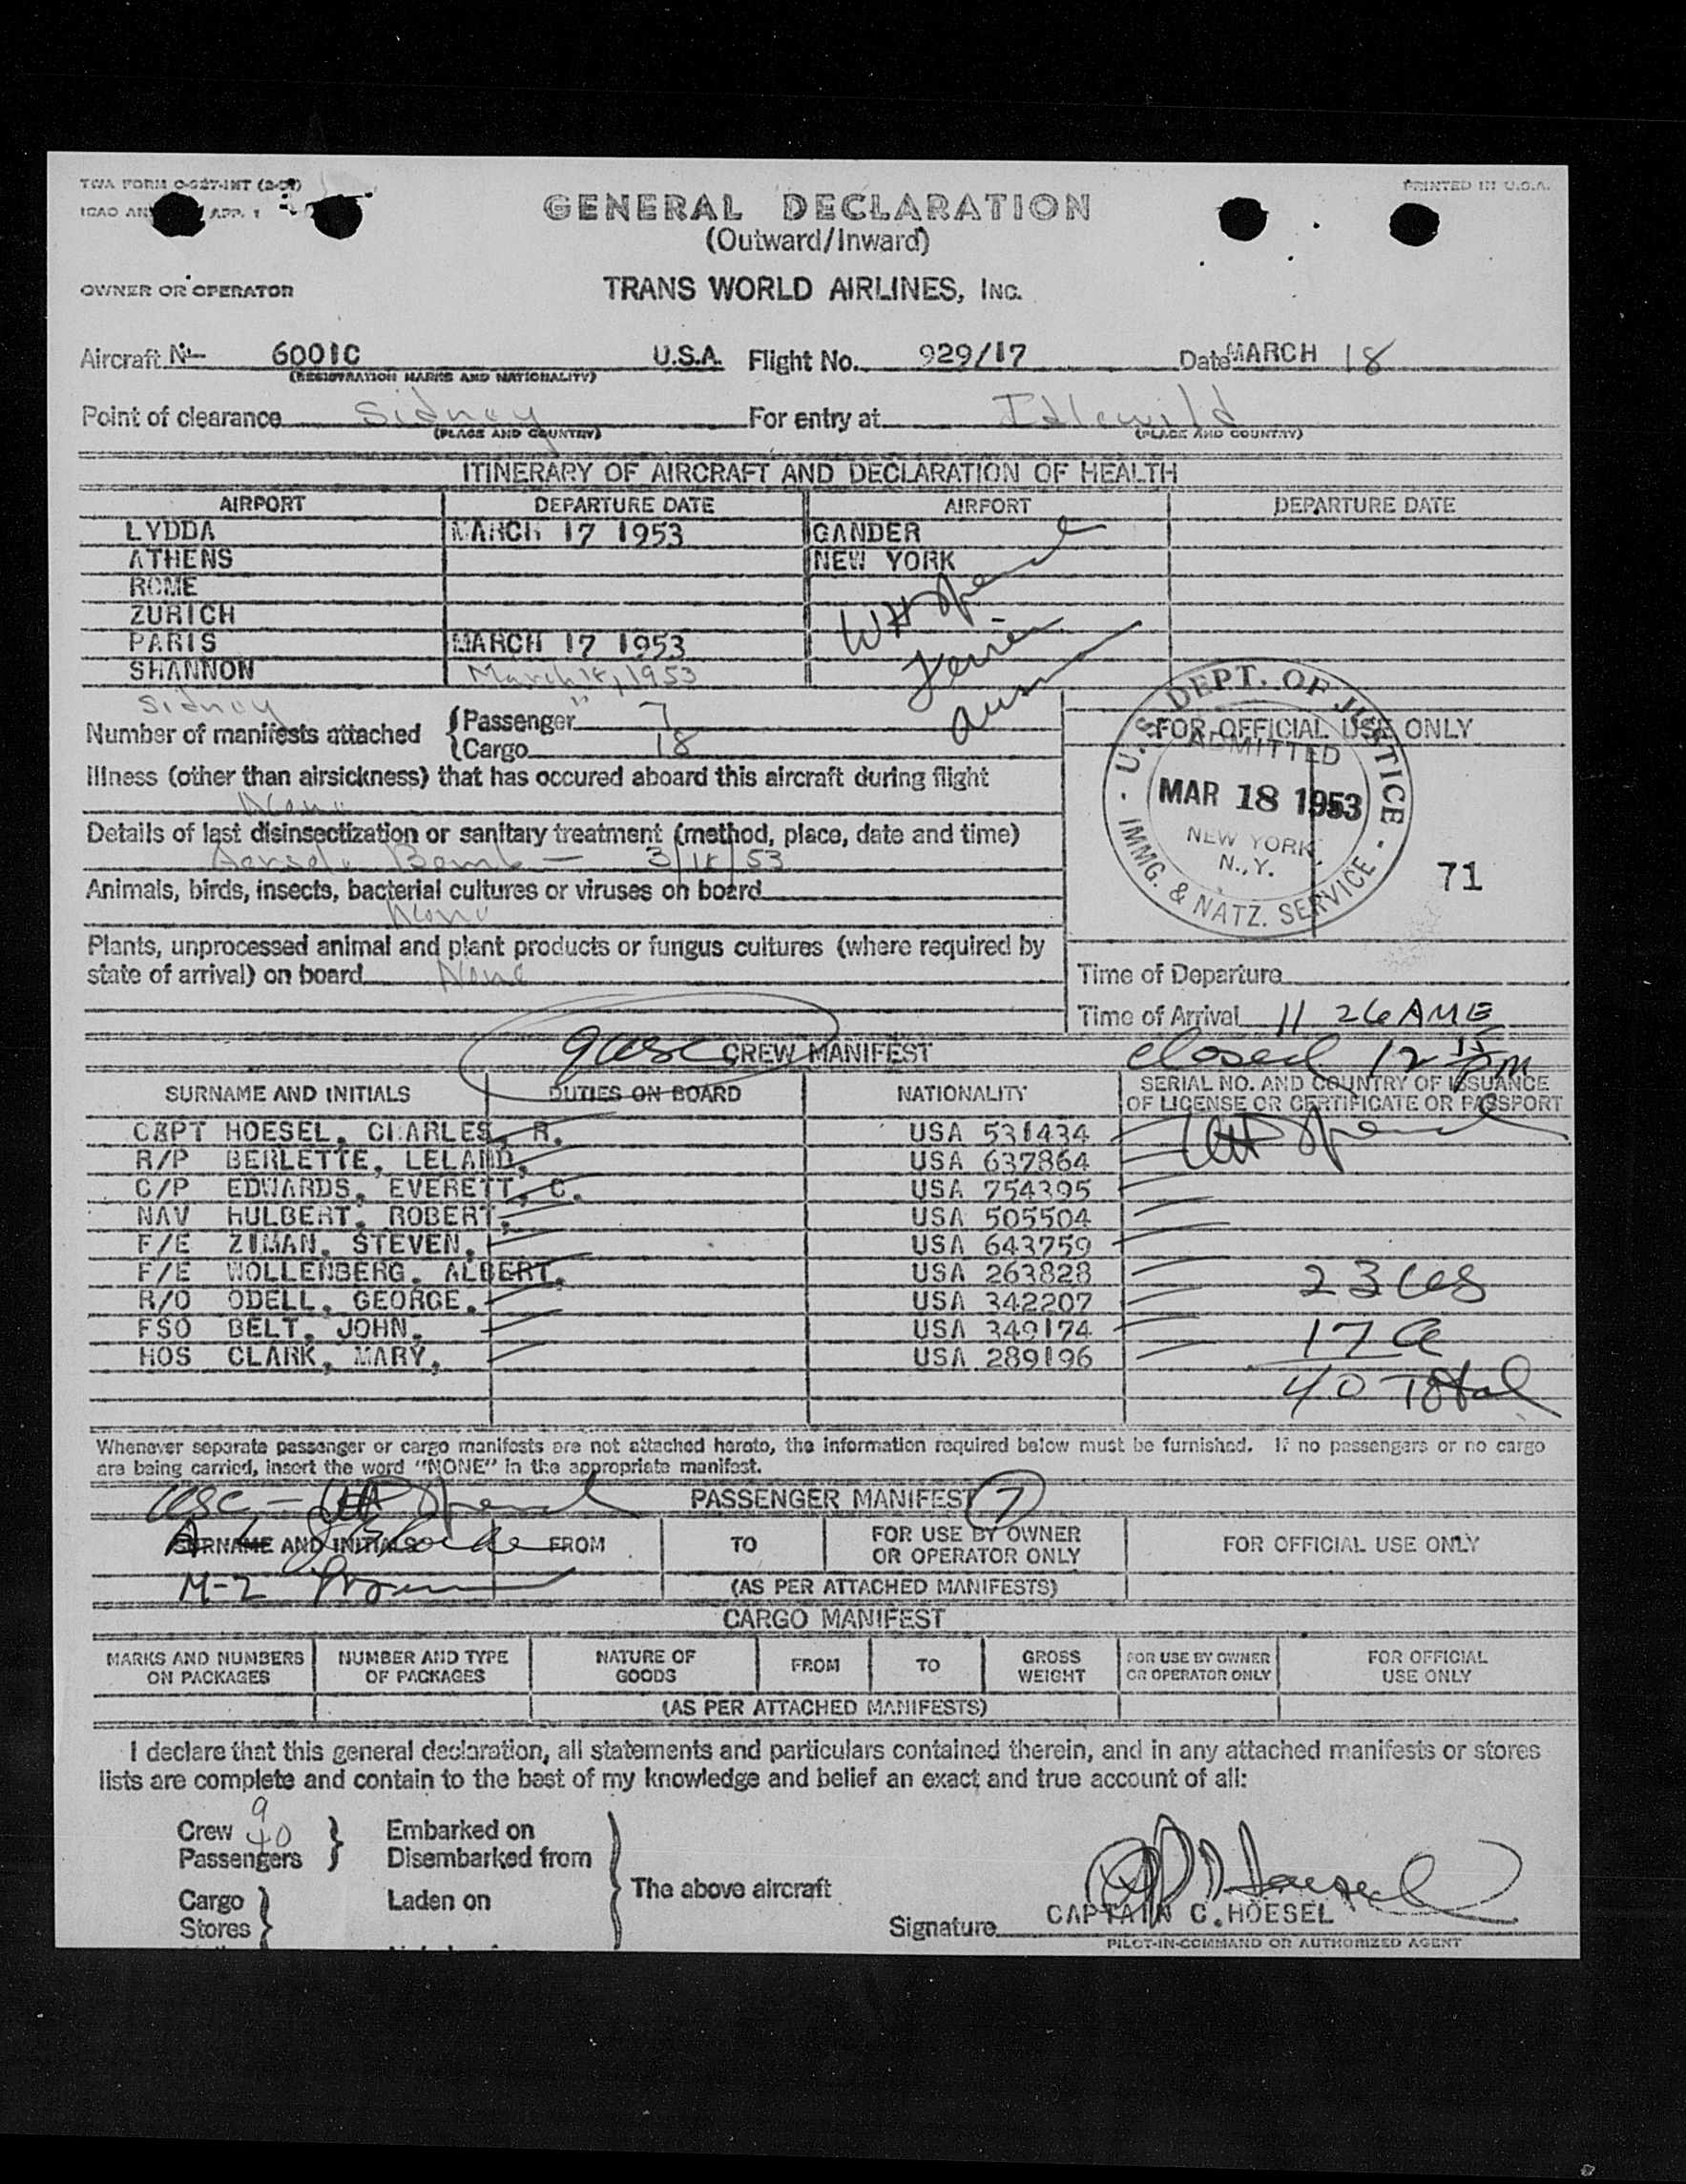 TWA FORM O-327-INT
PRINTED IN U.S.A.
ICAO APP. 1
GENERAL DECLARATION
(Outward/Inward)
OWNER OR OPERATOR TRANS WORLD AIRLINES, INC.
Aircraft N- 6001C U.S.A. Flight No. 929/17 Date MARCH 18
(REGISTRATION MARKS AND NATIONALITY)
Point of clearance Sidney For entry at Idlewild
(PLACE AND COUNTRY) (PLACE AND COUNTRY)
ITINERARY OF AIRCRAFT AND DECLARATION OF HEALTH
AIRPORT DEPARTURE DATE AIRPORT DEPARTURE DATE
LYDDA MARCH 17 1953 GANDER
ATHENS NEW YORK
ROME
ZURICH
PARIS MARCH 17 1953
SHANNON March 18, 1953
Sidney "
Number of manifests attached {Passenger 7
{Cargo 18
FOR OFFICIAL USE ONLY
U.S. DEPT. OF JUSTICE - IMMG. & NATZ. SERVICE -
ADMITTED
MAR 18 1953
NEW YORK, N.,Y.
71
Illness (other than airsickness) that has occured aboard this aircraft during flight
None
Details of last disinsectization or sanitary treatment (method, place, date and time)
Aersol Bomb - 3/18/53
Animals, birds, insects, bacterial cultures or viruses on board
None
Plants, unprocessed animal and plant products or fungus cultures (where required by
state of arrival) on board None
Time of Departure
Time of Arrival 11 26 AME
closed 12 15 PM
CREW MANIFEST
SURNAME AND INITIALS DUTIES ON BOARD NATIONALITY SERIAL NO. AND COUNTRY OF ISSUANCE
OF LICENSE OR CERTIFICATE OR PASSPORT
CAPT HOESEL, CHARLES, R. USA 531434
R/P BERLETTE, LELAND, USA 637864
C/P EDWARDS, EVERETT, C. USA 754395
NAV HULBERT, ROBERT, USA 505504
F/E ZIMAN, STEVEN, USA 643759
F/E WOLLENBERG, ALBERT, USA 263828
R/O ODELL, GEORGE, USA 342207
FSO BELT, JOHN, USA 349174
HOS CLARK, MARY, USA 289196
23 ces
17 a
40 Total
Whenever separate passenger or cargo manifests are not attached hereto, the information required below must be furnished. If no passengers or no cargo
are being carried, insert the word "NONE" in the appropriate manifest.
PASSENGER MANIFEST 7
SURNAME AND INITIALS FROM TO FOR USE BY OWNER
OR OPERATOR ONLY FOR OFFICIAL USE ONLY
M-2
(AS PER ATTACHED MANIFESTS)
CARGO MANIFEST
MARKS AND NUMBERS
ON PACKAGES NUMBER AND TYPE
OF PACKAGES NATURE OF
GOODS FROM TO GROSS
WEIGHT FOR USE BY OWNER
OR OPERATOR ONLY FOR OFFICIAL
USE ONLY
(AS PER ATTACHED MANIFESTS)
I declare that this general declaration, all statements and particulars contained therein, and in any attached manifests or stores
lists are complete and contain to the best of my knowledge and belief an exact and true account of all:
9
Crew 40 Embarked on
Passengers Disembarked from
The above aircraft
Cargo Laden on
Stores
Signature CAPTAIN C.HOESEL
PILOT-IN-COMMAND OR AUTHORIZED AGENT